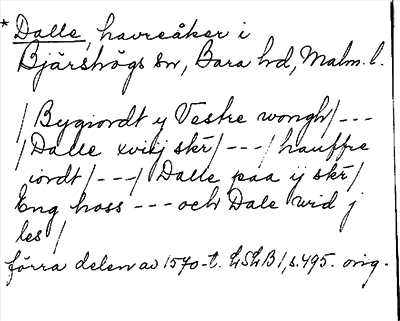 * Dalle, havreåker i
Bjärshögs sn, Bara hd, Malm. l.
/ Bygiordt y Vestre wongh / ---
/ Dalle xvij skr / --- / hauffre
iordt / --- / Dalle paa ij skr /
Eng hoss --- och Dale wid j
les /
förra delen av 1570-t. LSLB 1, s. 495. orig.